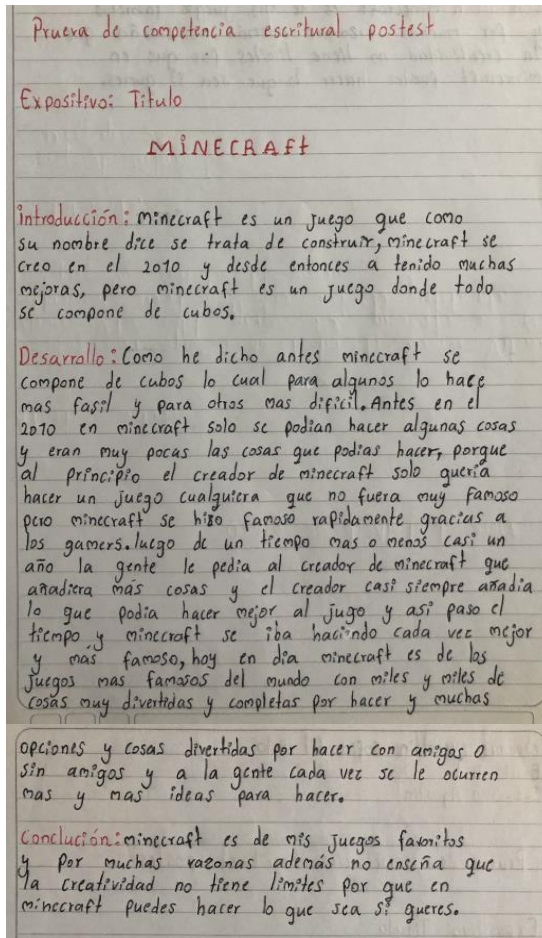 Prueva de competencia escritural postest
Expositivo: Titulo
MiNECRAft
introducción: minecraft es un juego que como
su nombre dice se trata de construir, minecraft se
creo en el 2010 y desde entonces a tenido muchas
mejoras, pero minecraft es un juego donde todo
se compone de cubos.
Desarrollo: Como he dicho antes minecraft se
compone de cubos lo cual para algunos lo hace
mas fasil y para otros mas dificil. Antes en el
2010 en minecraft solo se podian hacer algunas cosas
y eran muy pocas las cosas que podias hacer, porque
al principio el creador de minecraft solo queria
hacer un juego cualquiera que no fuera muy famoso
pero minecraft se hiso famoso rapidamente gracias a
los gamers. luego de un tiempo mas o menos casi un
año la gente le pedia al creador de minecraft que
añadiera más cosas y el creador casi siempre añadia
lo que podia hacer mejor al jugo y asi paso el
tiempo y minecraft se iba haciendo cada vez mejor
y más famoso, hoy en dia minecraft es de los
juegos mas famosos del mundo con miles y miles de
cosas muy divertidas y completas por hacer y muchas
opciones y cosas divertidas por hacer con amigas o
sin amigos y a la gente cada vez se le ocurren
mas y mas ideas para hacer.
Conclución: minecraft es de mis juegos favoritos
y por muchas razonas además no enseña que
la creatividad no tiene limites por que en
minecraft puedes hacer lo que sea si queres.